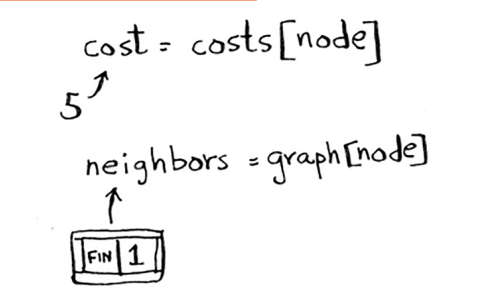 cost = costs[node]
5
neighbors = graph[node]
FIN 1